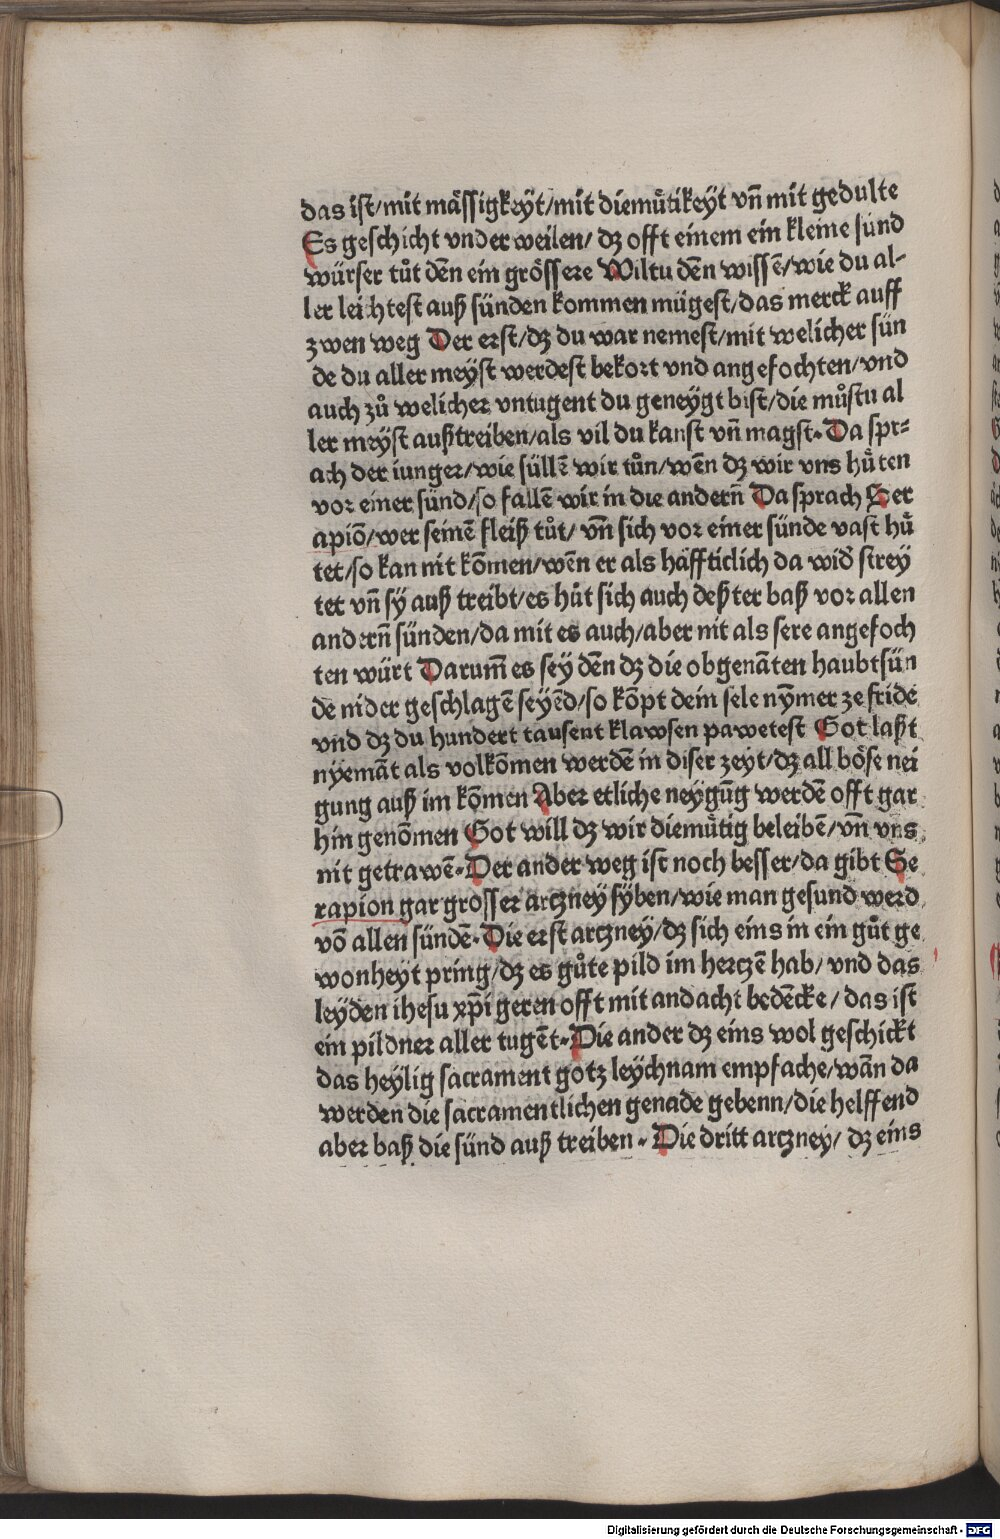 das ist/mit mässigkeyt/mit diemuͤtikeyt vn̄ mit gedulte
Es geschicht vnder weilen/ dz offt einem ein kleine sünd
würser tuͦt den̄ ein grössere Wiltu den̄ wissē/wie du al-
ler leichtest auß sünden kommen mügest/das merck auff
zwen weg Der erst/dz du war nemest/mit welicher sün
de du aller meyst werdest bekort vnd angefochten/vnd
auch zuͦ welicher vntugent du geneygt bist/die muͦstu al
ler meyst außtreiben/als vil du kanst vn̄ magst. Da spr=
ach der iunger/wie süllē wir tuͦn/wen̄ dz wir vns huͤten
vor einer sünd/so fallē wir in die andern̄ Da sprach Ser
apiō/wer seinē fleiß tuͦt/ vn̄ sich vor einer sünde vast huͤ
tet/so kan nit kōmen/wen̄ er als häffticlich da wid̄ strey
tet vn̄ sy auß treibt/es huͤt sich auch deßter baß vor allen
andern̄ sünden/da mit es auch/aber nit als sere angefoch
ten würt Darum̄ es sey den̄ dz die obgenāten haubtsün
de nider geschlagē seyēd/so kōpt dein sele nȳmer ze fride
vnd dz du hundert tausent klawsen pawetest Got laßt
nyemāt als volkōmen werdē in diser zeyt/dz all böse nei
gung auß im kōmen Aber etliche neygūg werdē offt gar
hin genōmen Got will dz wir diemuͤtig beleibē/vn̄ vns
nit getrawē. Der ander weg ist noch besser/da gibt Se
rapion gar grosser arczney syben/wie man gesund werd
vō allen sündē. Die erst arczney/dz sich eins in ein guͦt ge
wonheyt pring/dz es guͦte pild im herczē hab/ vnd das
leyden ihesu xp̄i geren offt mit andacht bedēcke/ das ist
ein pildner aller tugēt. Die ander dz eins wol geschickt
das heylig sacrament gotz leychnam empfache/wān da
werden die sacramentlichen genade gebenn/die helffend
aber baß die sünd auß treiben. Die dritt arczney/ dz eins
Digitalisierung gefördert durch die Deutsche Forschungsgemeinschaft - DFG